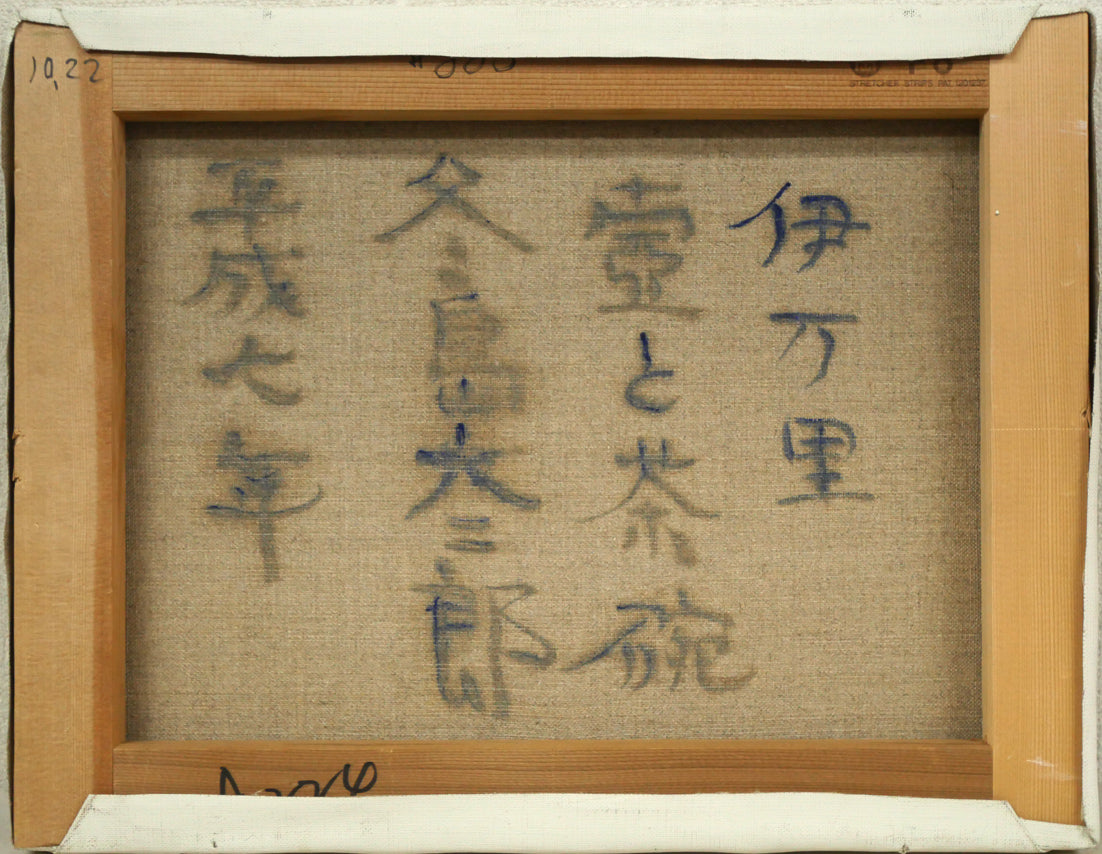 10,22
STRETCHER STRIPS PAT.
伊万里
壺と茶碗
冬島大二郎
平成七年